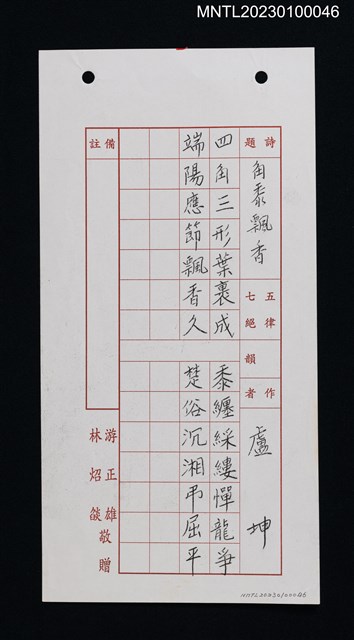 MNTL20230100046
詩題
角黍飄香
五律
七絕
韻
作者
盧坤
四角三形葉裹成
黍纏綵縷憚龍爭
端陽應節飄香久
楚俗沉湘弔屈平
備註
游正雄
林炤燄
敬贈
MNTL20230100046